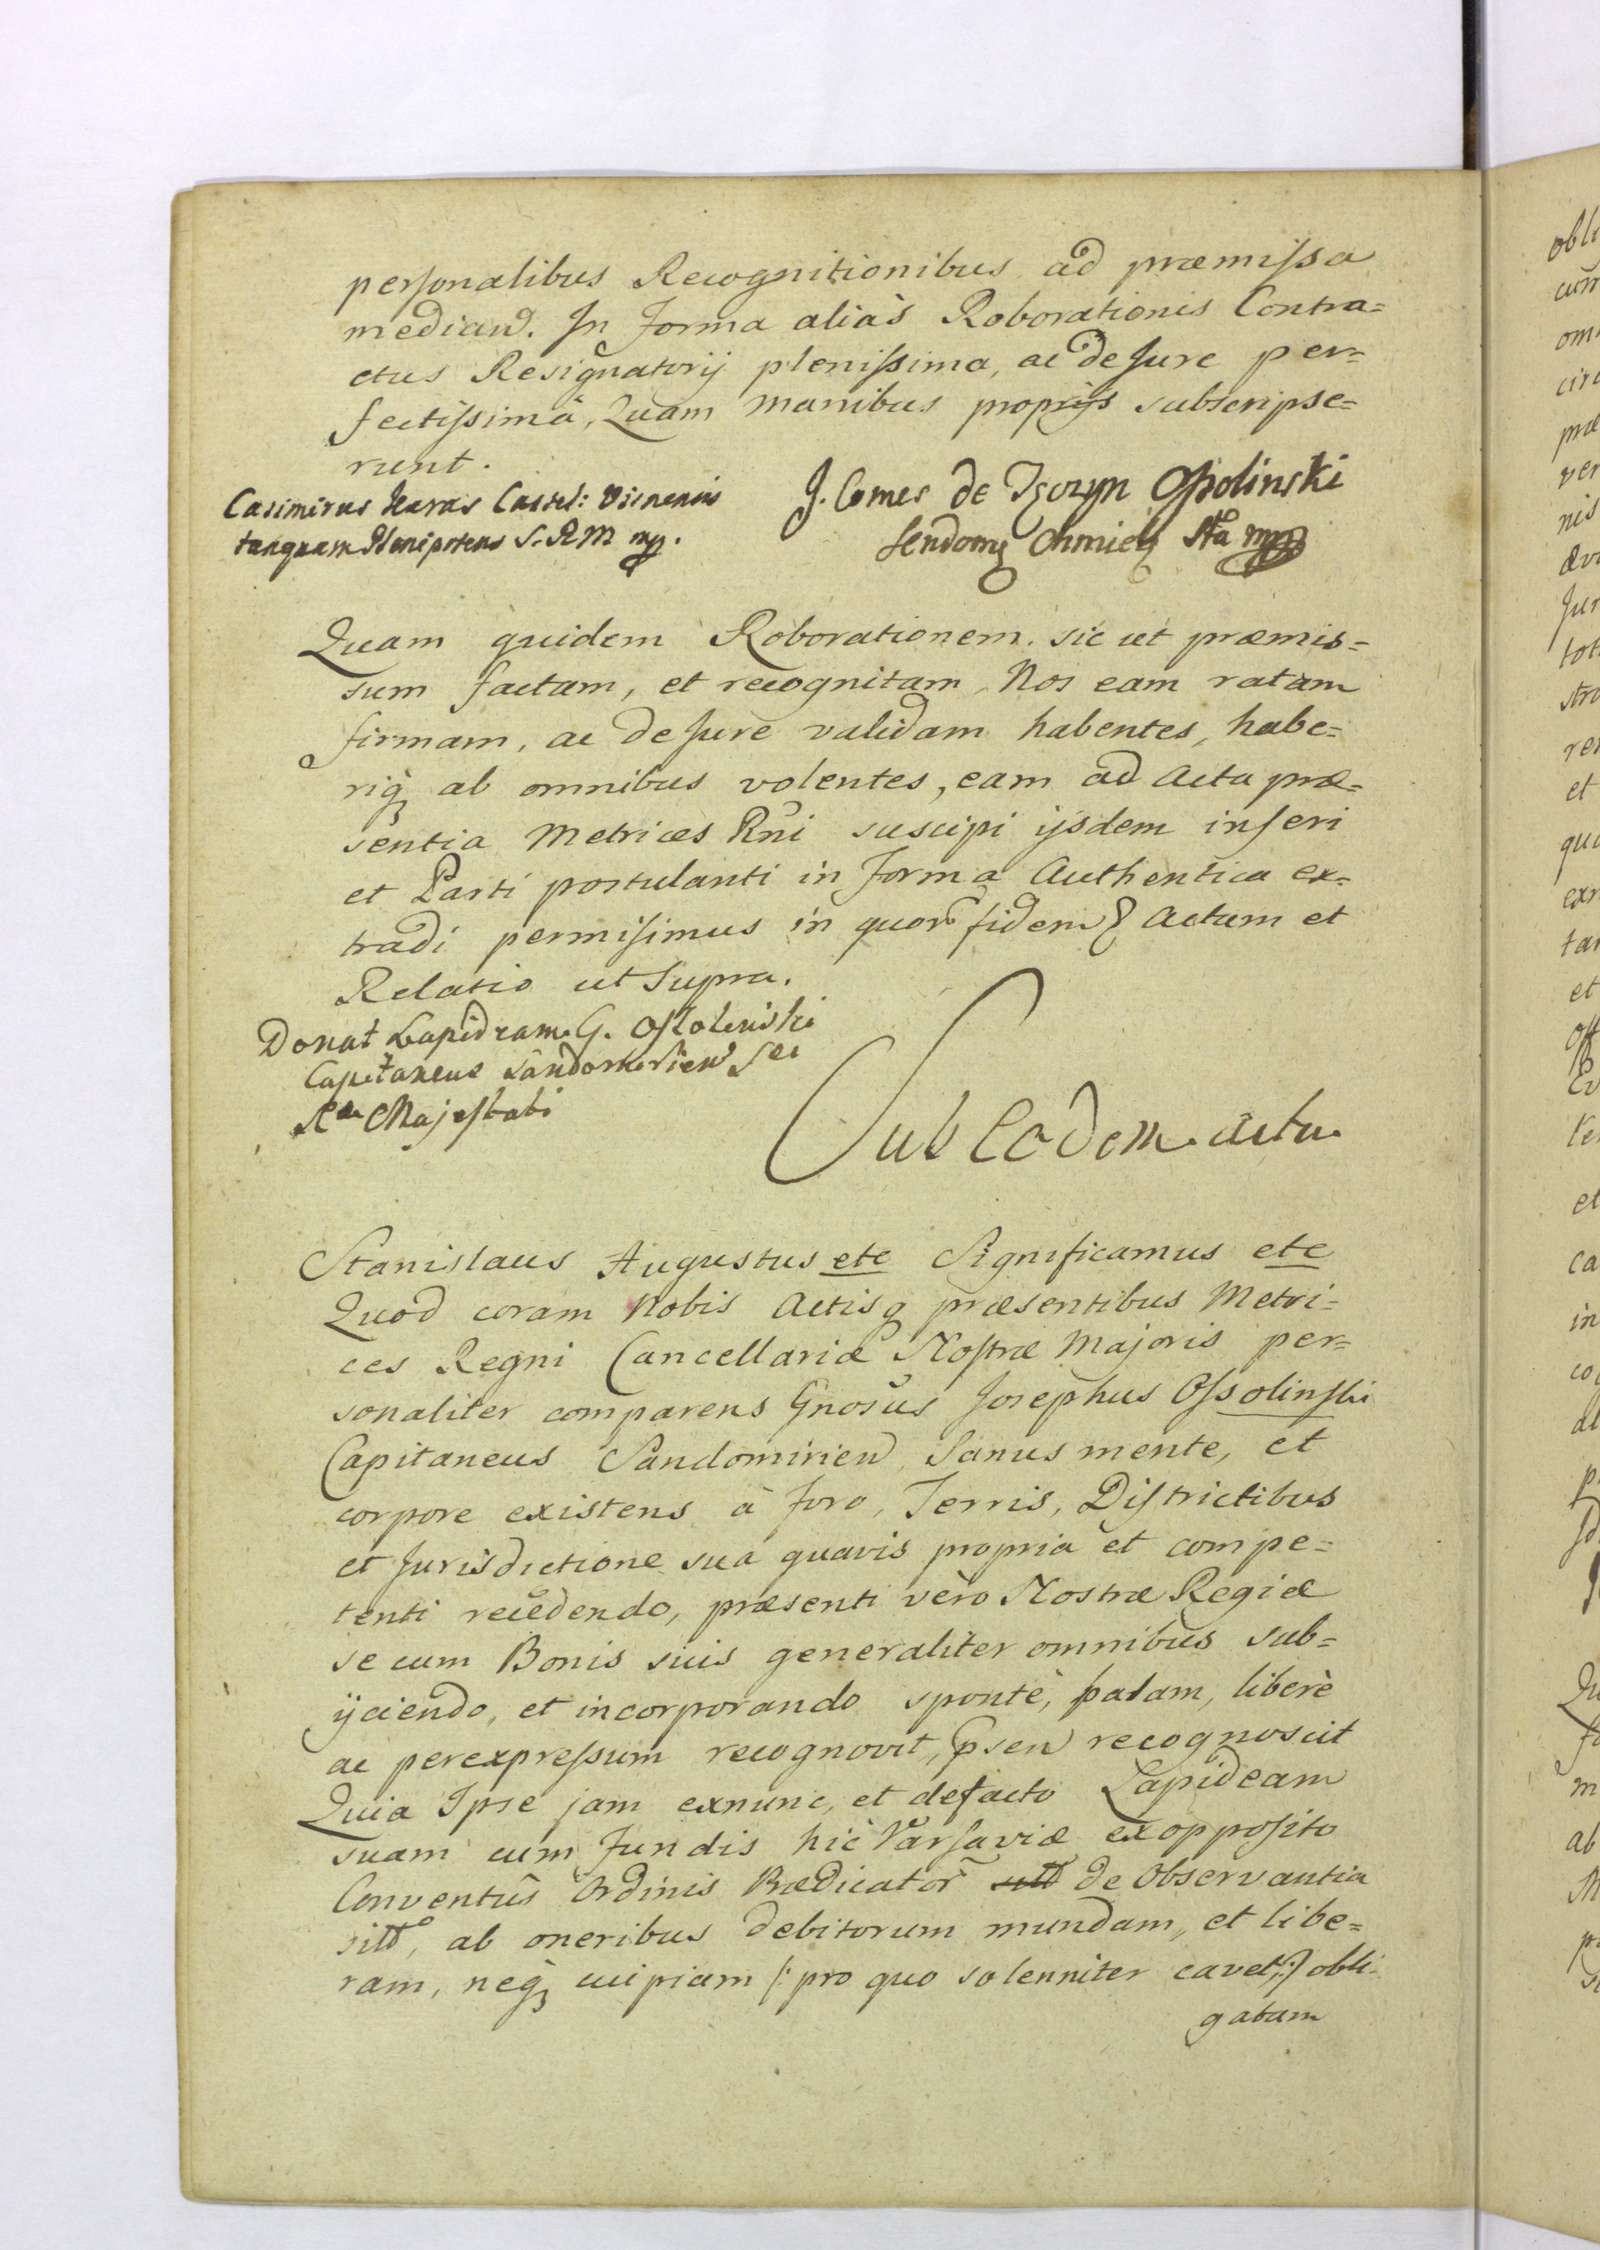 personalibus Recognitionibus ad præmissa
mediand. In forma aliàs Roborationis Contra=
ctus Resignatorij plenissima, ac de Jure per=
fectissimâ, Quam manibus proprijs subscripse=
runt.
Casimirus Karas Castel: Visnensis
tanquam Plenipotens S. R M mp.
J. Comes de Tęczyn Ossolinski
Sendomą Chmielą Sta mp
Quam quidem Roborationem sic ut præmis=
sum factam, et recognitam, Nos eam ratam
firmam, ac de Jure validam habentes, habe=
riq ab omnibus volentes, eam ad Acta præ=
sentia Metrices Rñi suscipi ijsdem inseri
et Parti postulanti in forma Authentica ex=
tradi permisimus in quor fidem Actum et
Relatio ut Supra.
Donat Lapideam G. Ossolinski
Capitaneus Sandomirien Sæ
Ræ Majestati
Sub Eadem Actu
Stanislaus Augustus etc Significamus etc
Quod coram Nobis Actisq præsentibus Metri=
ces Regni Cancellariæ Nostræ Majoris per=
sonaliter comparens Gnosus Josephus Ossolinski
Capitaneus Sandomirien Sanus mente, et
corpore existens à foro, Terris, Districtibus
et Jurisdictione sua quavis propria et compe=
tenti recedendo, præsenti vèro Nostræ Regiæ
se cum Bonis suis generaliter omnibus sub=
ijciendo, et incorporando spontè, palam, liberè
ac perexpressum recognovit, psen recognoscit
Quia Ipse jam exnunc, et defacto Lapideam
suam cum fundis hic Varsaviæ exopposito
Conventûs Ordinis Prædicator de Observantia
sitto, ab oneribus debitorum mundam, et libe=
ram, neq cuipiam /: pro quo solenniter cavet :/ obli=
gatam
obli
cum
omn
circ
præ
ver
nis
Jur
tot
ret
et
qua
tan
et
et
ca
in
ab